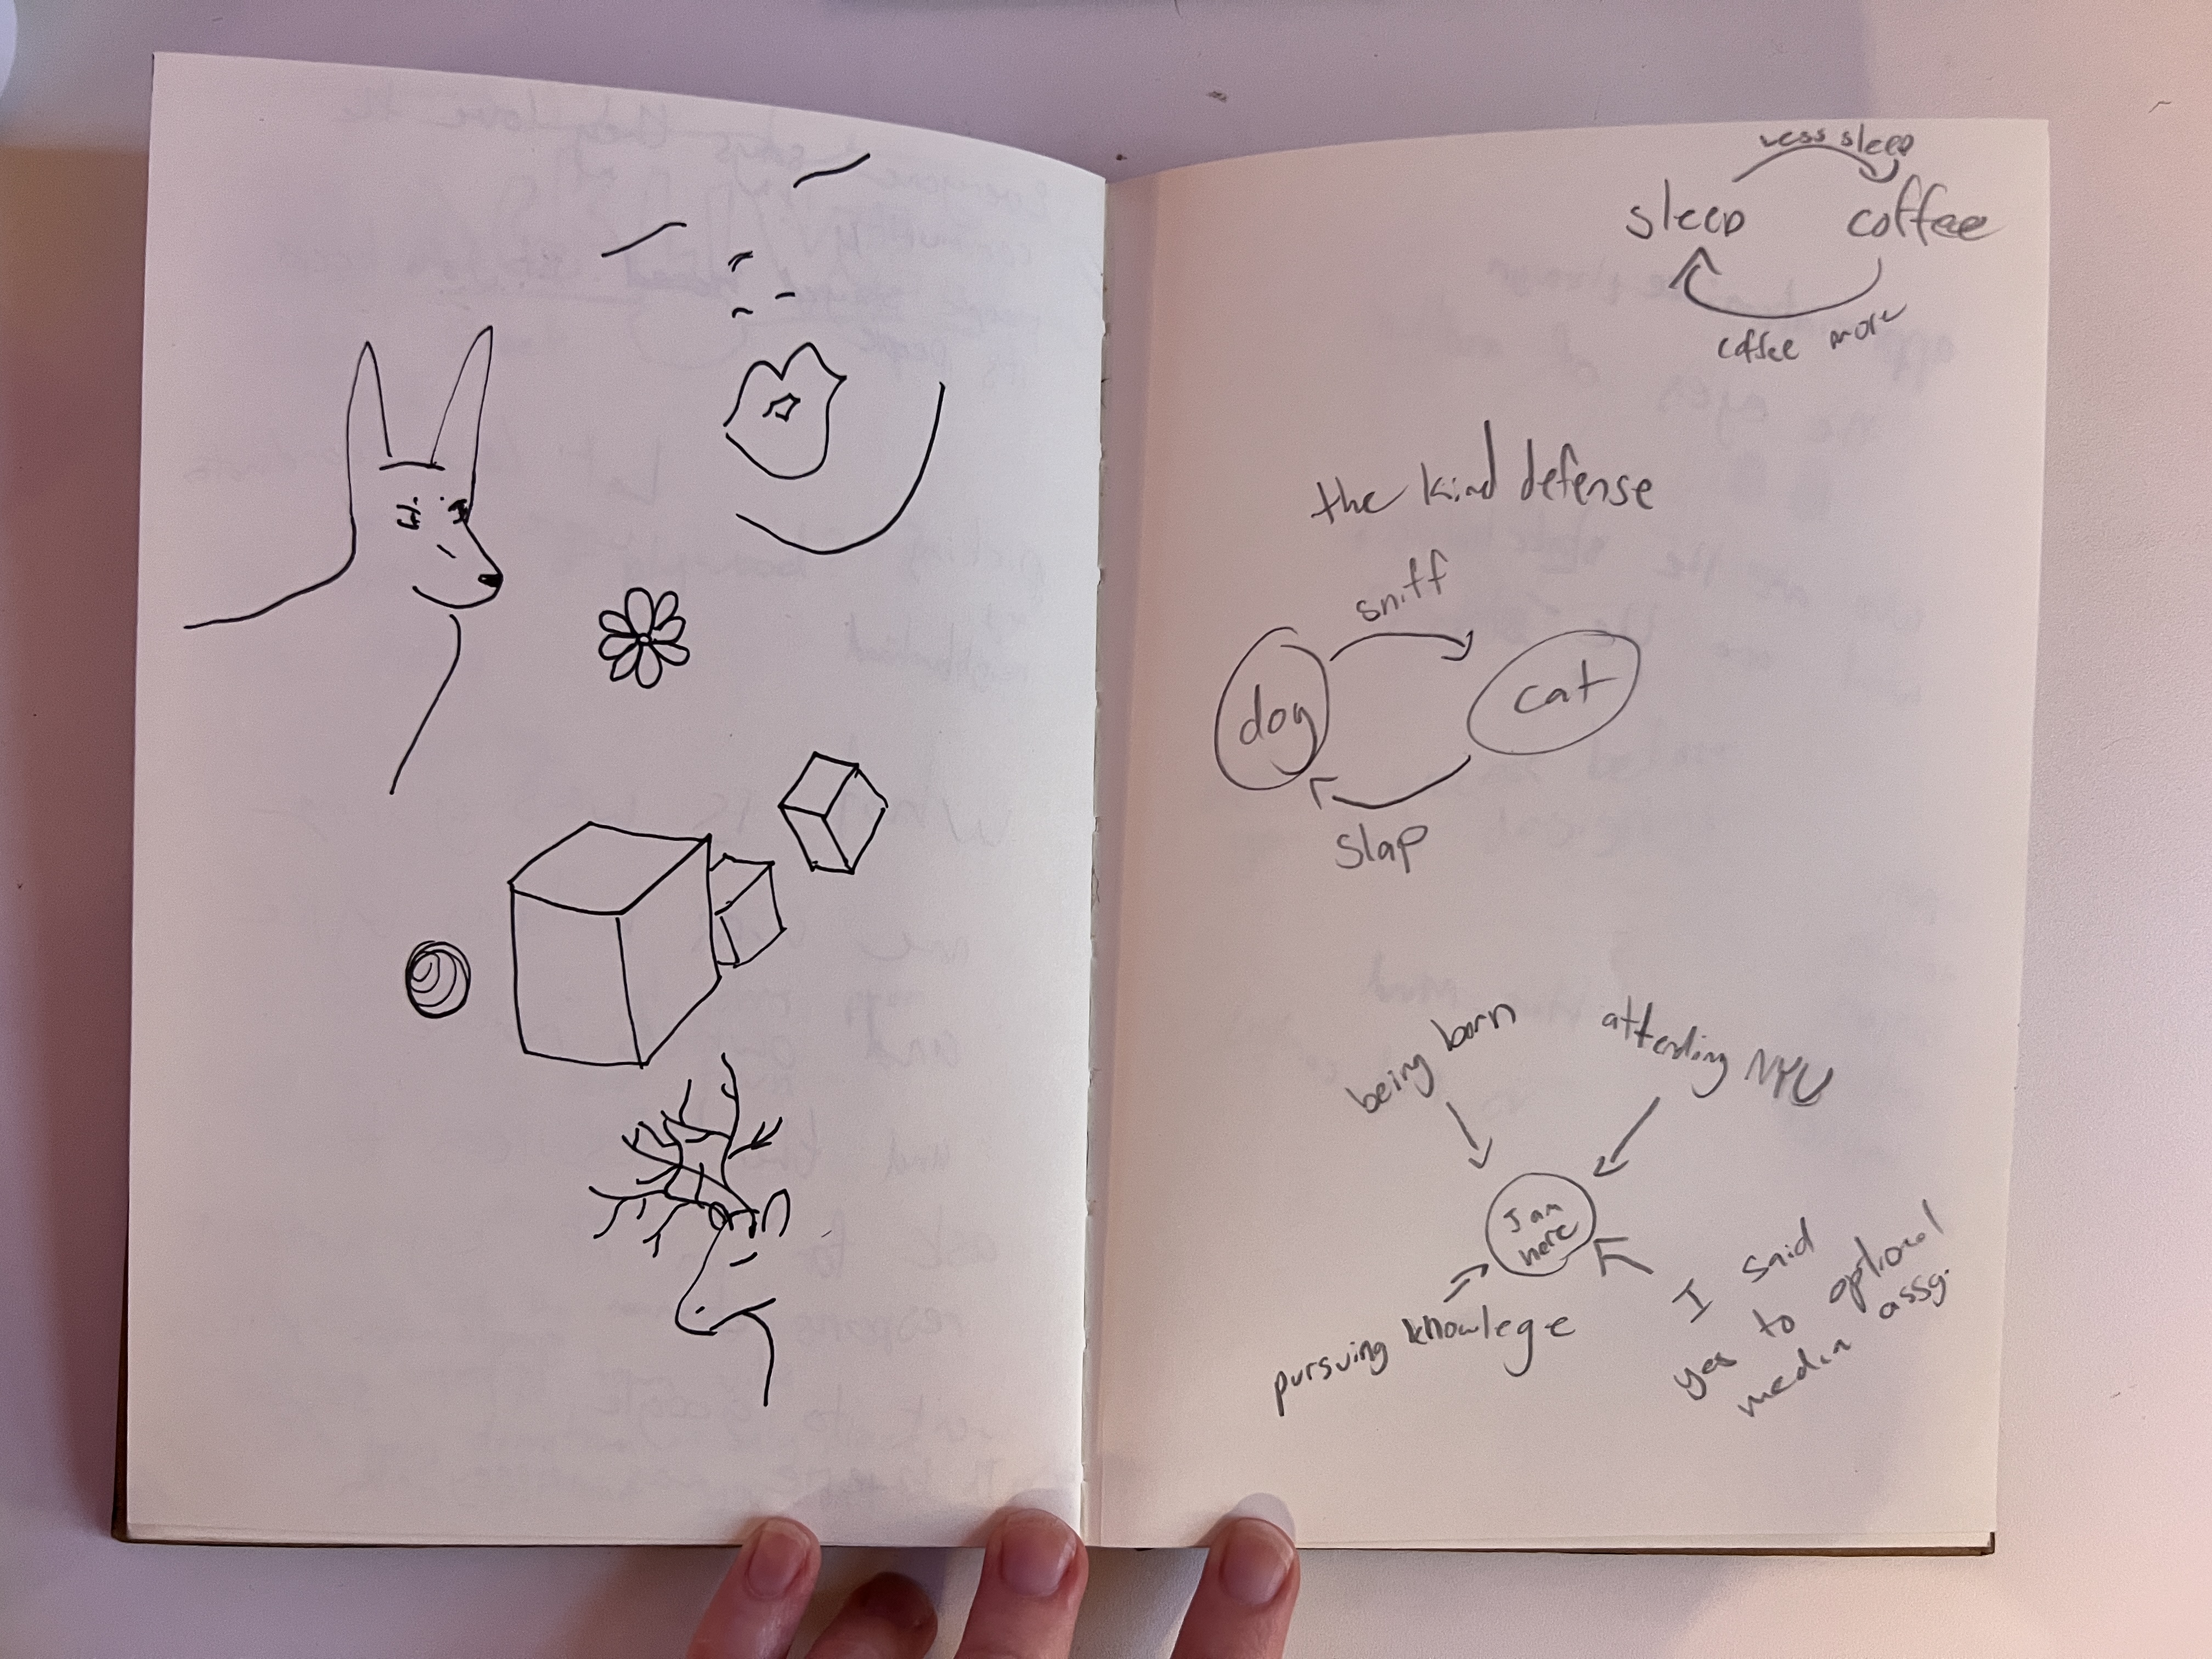 less sleep
sleep coffee
coffee more
the kind defense
sniff
dog cat
slap
being born
attending NYU
I am
here
pursuing knowlege
I said
yes to optional
media assg.